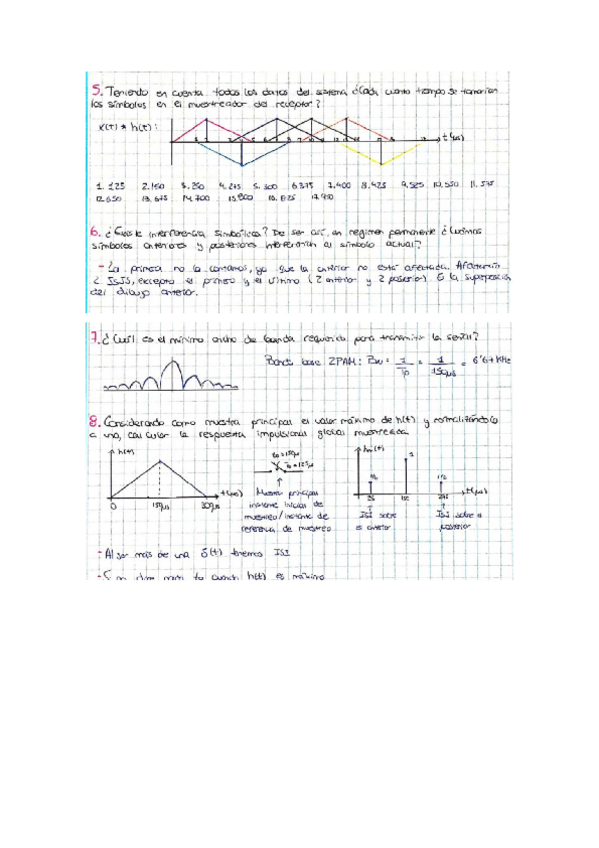 5. Teniendo en cuenta todos los datos del sistema ¿Cada cuanto tiempo se tomarían
los símbolos en el muestreador del receptor?
x(t) * h(t):
t(µs)
1. 125 2. 150 3. 250 4. 275 5. 300 6. 375 7. 400 8. 425 9. 525 10. 550 11. 575
12. 650
6. ¿Existe interferencia simbólica? De ser así, en regimen permanente ¿Cuántos
símbolos anteriores y posteriores interferirían al símbolo actual?
- La primera no la contamos, ya que la anterior no está afectada. Afectarán
2 ISIS, excepto el primero y el último (2 anterior y 2 posterior). O la superposición
del dibujo anterior.
7. ¿Cuál es el mínimo ancho de banda requerido para transmitir la señal?
Banda base 2PAM: Bw = 1/Tp = 1/150µs = 6'67 KHz
8. Considerando como muestra principal el valor máximo de h(t) y normalizándolo
a uno, calcular la respuesta impulsional global muestreada
h(t)
t(µs)
0 150µs 300µs
to = 150µs
Ts = 125µs
Muestra principal
instante inicial de
muestreo/instante de
referencia de muestreo
1
1/6
25 150 275
t(µs)
ISI sobre
el anterior
ISI sobre el
posterior
- Al ser más de una δ(t) tenemos ISI
cuando h(t) es máximo